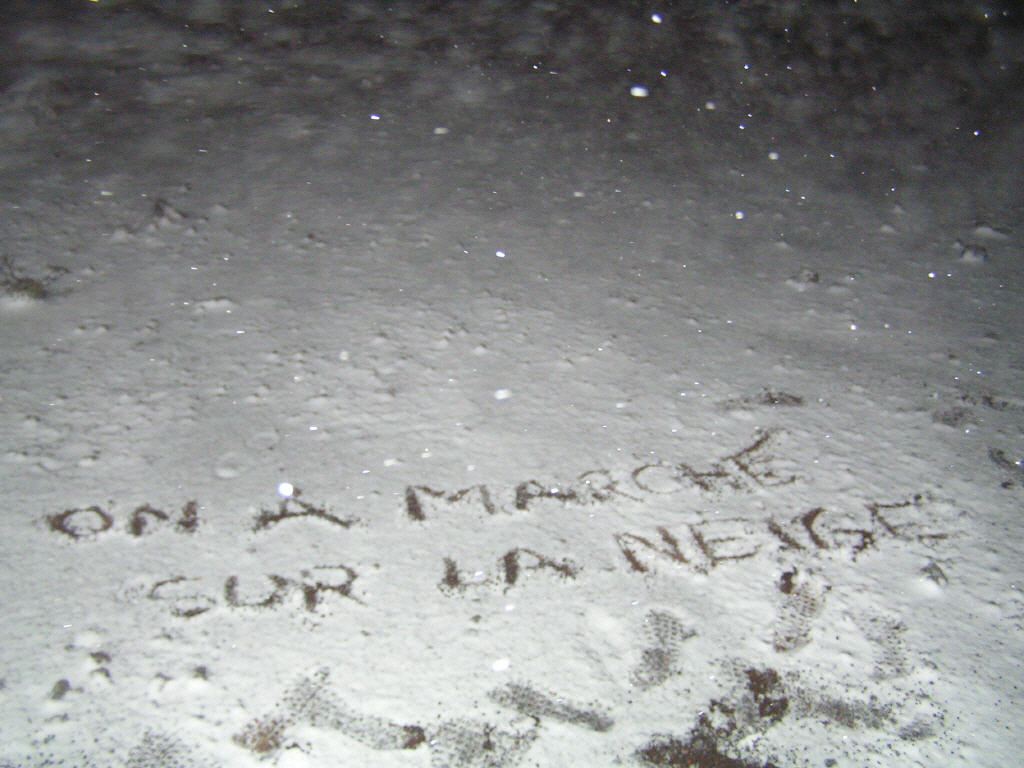 ON A MARCHÉ
SUR LA NEIGE